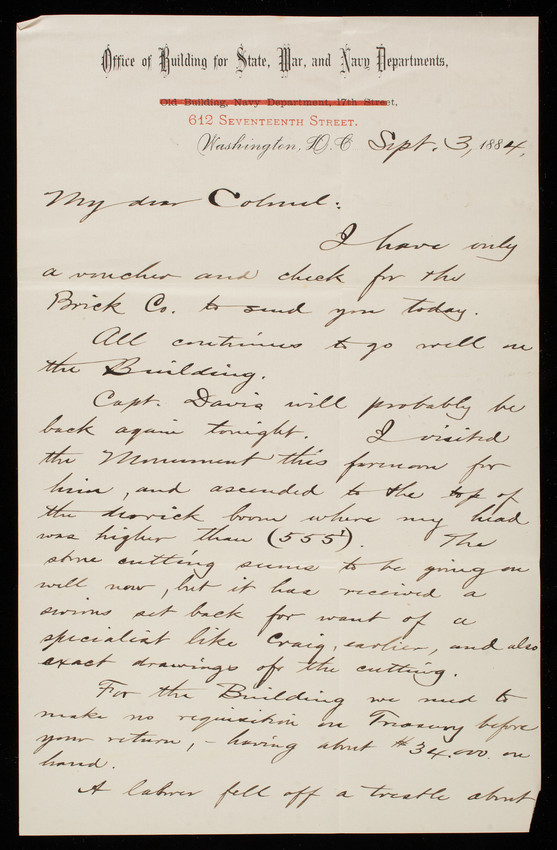 Office of Building for State, War, and Navy Departments,
Old Building, Navy Department, 17th Street,
612 Seventeenth Street.
Washington, D.C. Sept. 3, 1884,
My dear Colonel:
I have only
a voucher and check for the
Brick Co. to send you today.
All continues to go well on
the Building.
Capt. Davis will probably be
back again tonight. I visited
the Monument this forenoon for
him, and ascended to the top of
the derrick boom where my head
was higher than (555'). The
stone cutting seems to be going on
well now, but it has received a
serious set back for want of a
specialist like Craig, earlier, and also
exact drawings of the cutting.
For the Building we need to
make no requisition on Treasury before
your return, – having about $34.000. on
hand.
A laborer fell off a trestle about